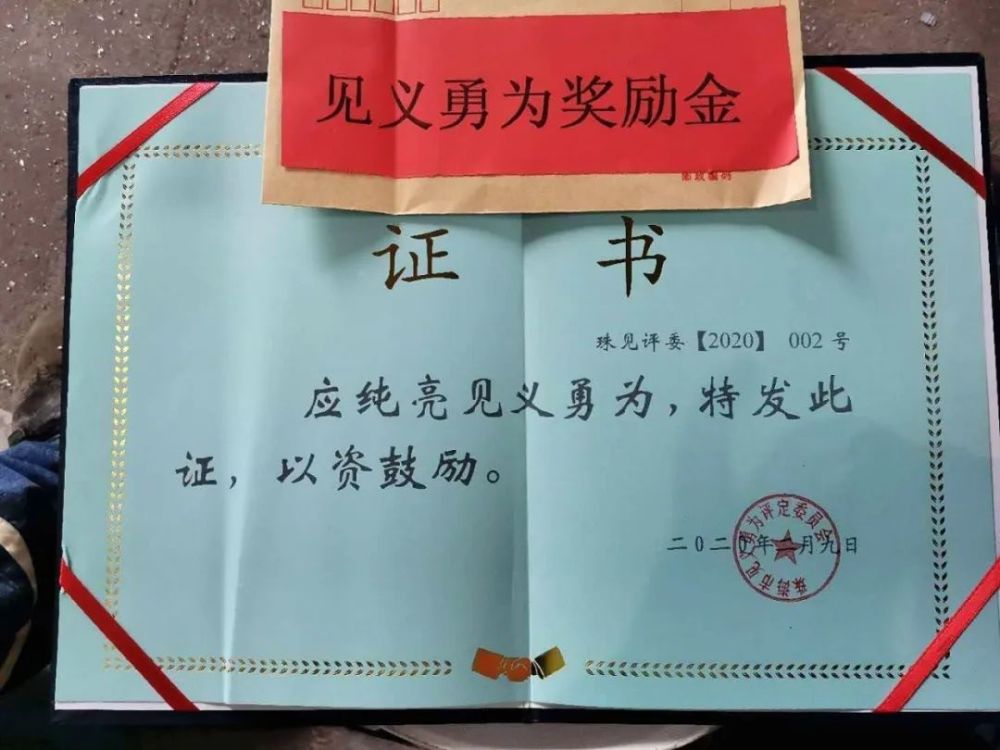 见义勇为奖励金
邮政编码
证 书
珠见评委【2020】 002 号
应纯亮见义勇为，特发此
证，以资鼓励。
二0二0年二月九日
珠海市见义勇为评定委员会